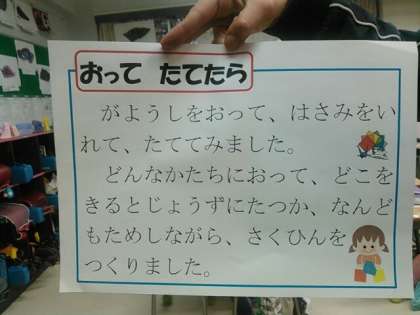 おって　たてたら
　がようしをおって、はさみをい
れて、たててみました。
　どんなかたちにおって、どこを
きるとじょうずにたつか、なんど
もためしながら、さくひんを
つくりました。